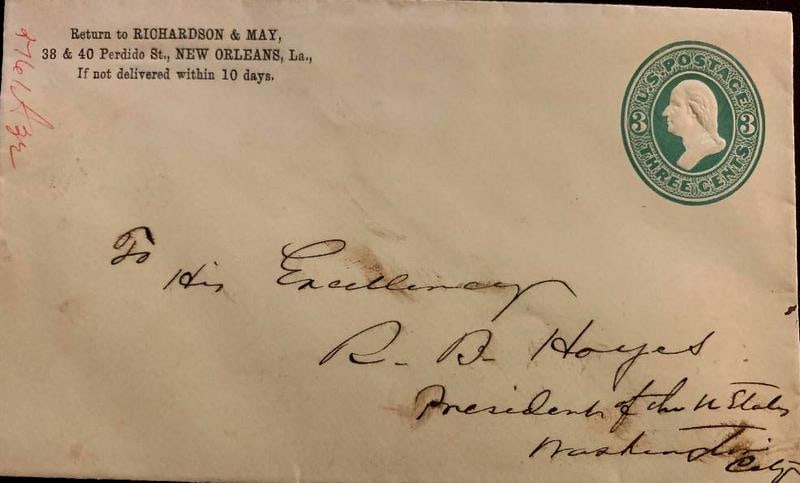 Return to RICHARDSON & MAY,
38 & 40 Perdido St., NEW ORLEANS, La.,
If not delivered within 10 days.
U.S. POSTAGE
3 3
THREE CENTS
To
His Excellency
R. B. Hayes
President of the U States
Washington
City